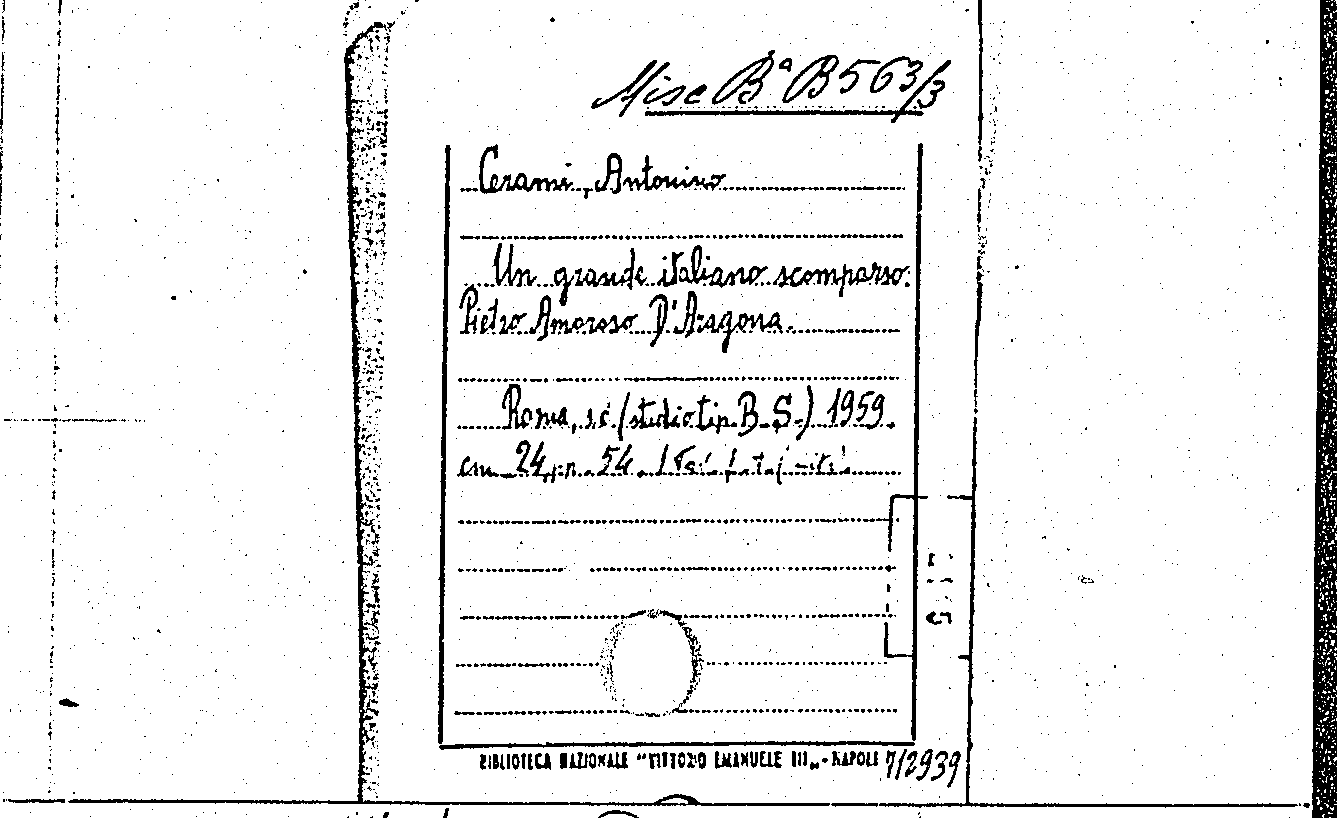 Misc Bª B 563/3
Cerami, Antonino
Un grande italiano scomparso:
Pietro Amoroso D'Aragona.
Roma, s.e. (studio tip. B. S.) 1959.
cm 24, pp. 54.
BIBLIOTECA NAZIONALE "VITTORIO EMANUELE III„ - NAPOLI 7/2939